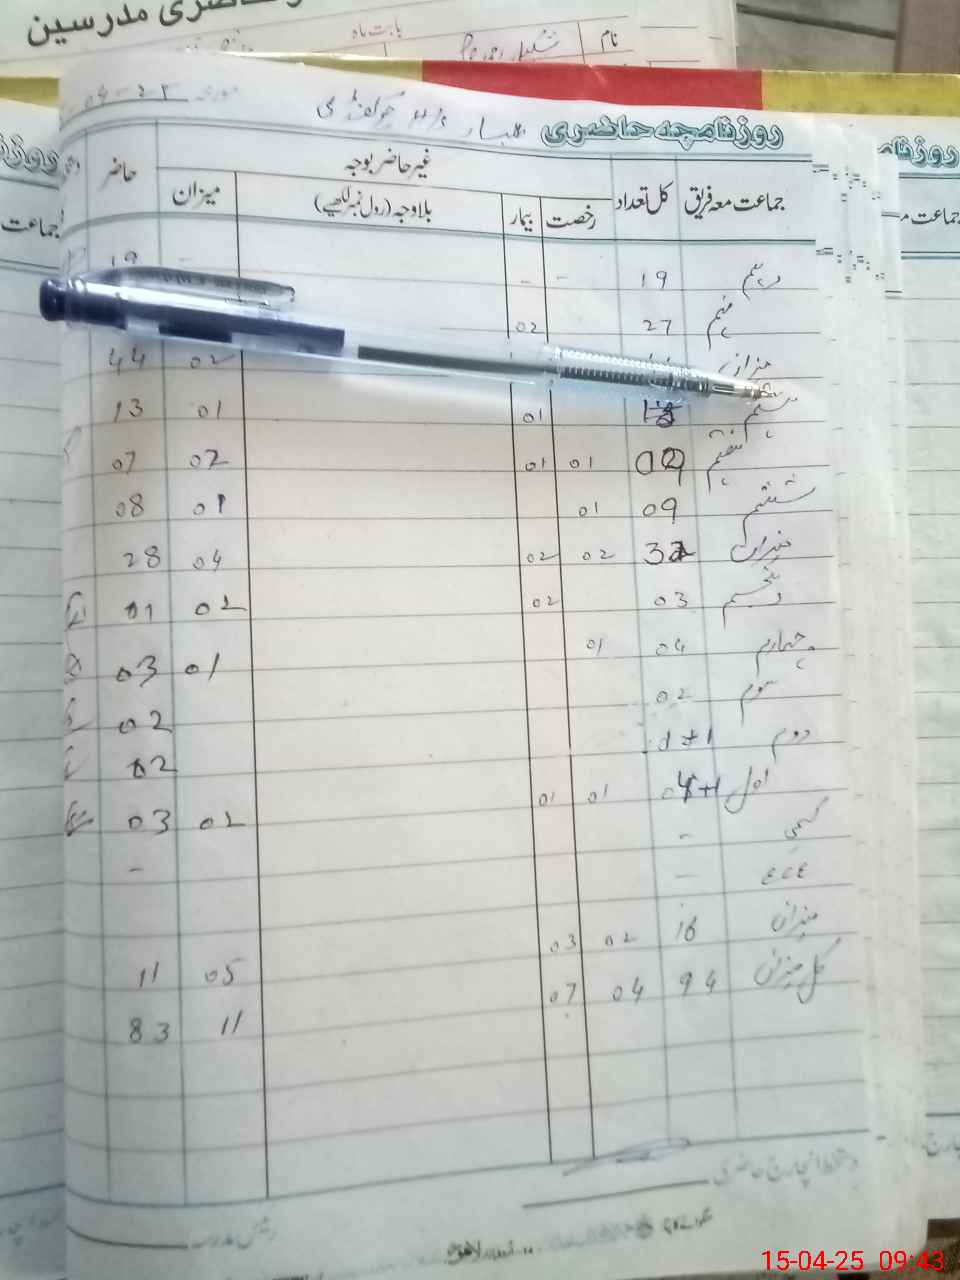 حاضری مدرسین
نام
بابت ماہ
روزنامچہ حاضری
جماعت معہ فریق کل تعداد غیر حاضر بوجہ حاضر
رخصت بیمار بلاوجہ (رول نمبر لکھیے) میزان
دہم 19 - - - 19
نہم 27 02
میزان 02 44
ہشتم 01 01 13
ہفتم 09 01 01 02 07
ششم 09 01 01 08
میزان 32 02 02 04 28
پنجم 03 02 02 01
چہارم 04 01 01 03
سوم 02 02
دوم 1+1 02
اول 04+1 01 01 02 03
کچی - -
ععع -
میزان 16 02 03 05 11
کل میزان 94 04 07 11 83
دستخط انچارج حاضری
رئیس مدرسہ
روزنامچہ
جماعت
15-04-25 09:43